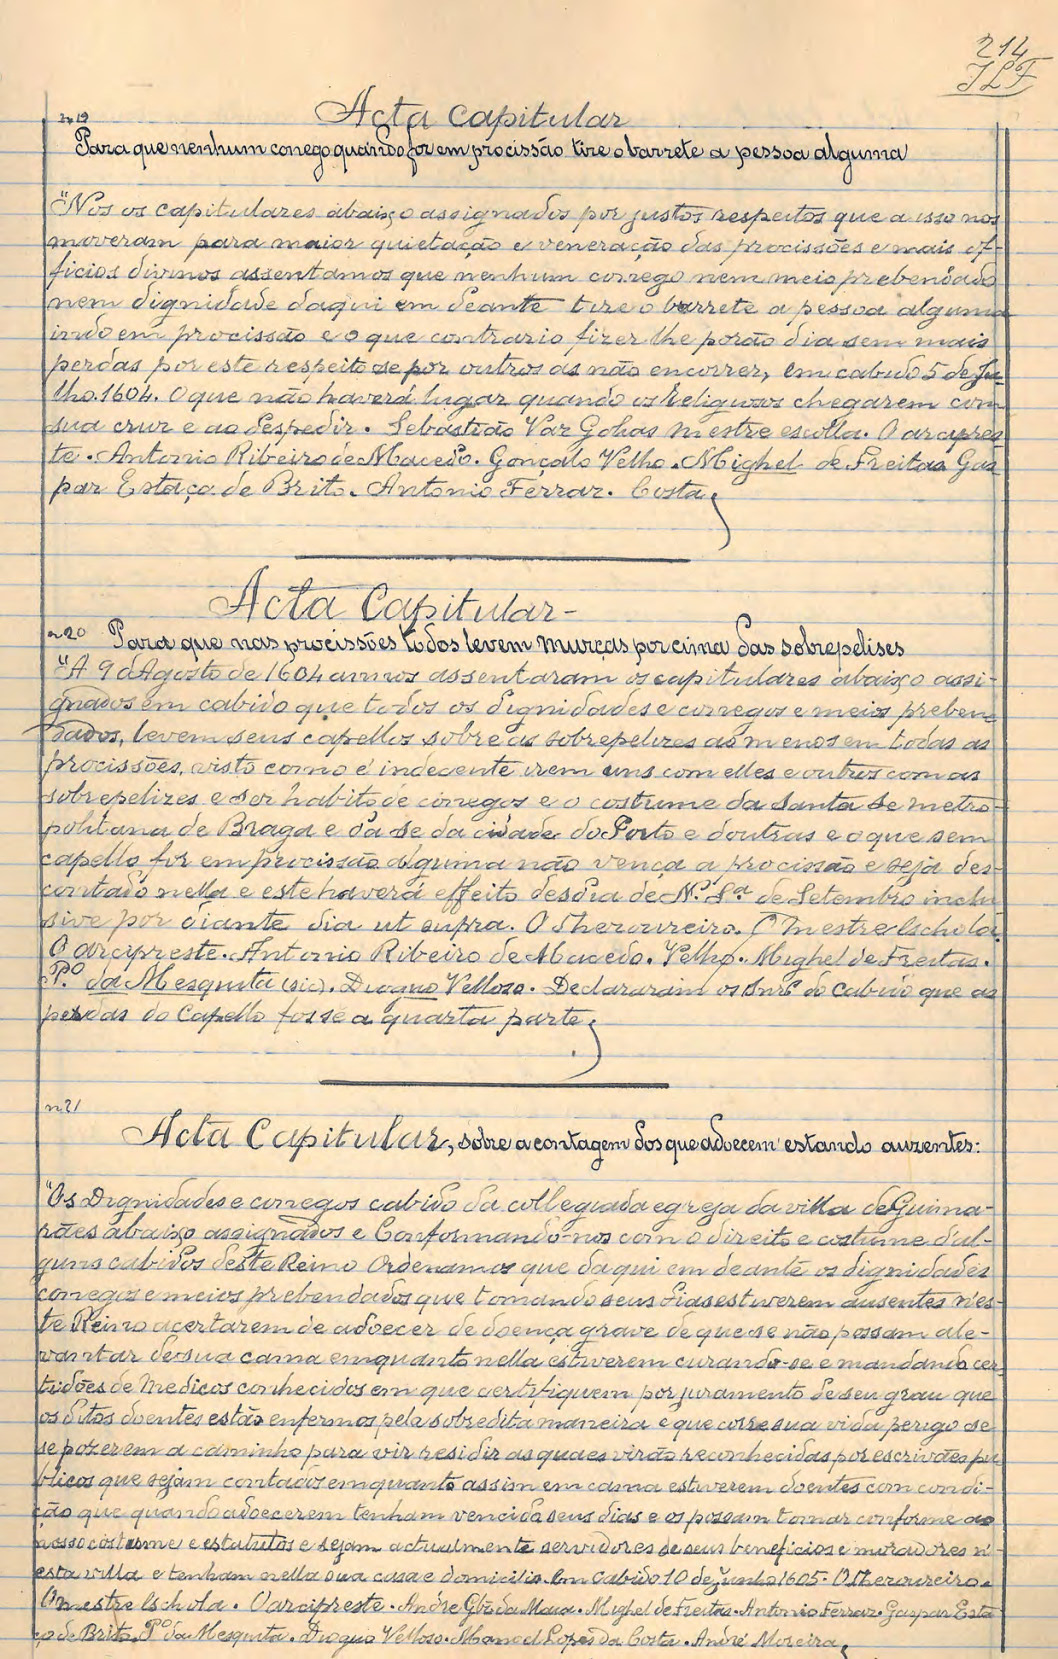 214
JLF
nº 19
Acta Capitular
Para que nenhum conego quando for em procissão tire o barrete a pessoa alguma
"Nós os capitulares abaixo assignados por justos respeitos que a isso nos
moveram para maior quietação e veneração das procissões e mais of-
ficios divinos assentamos que nenhum conego nem meio prebendado
nem dignidade daqui em deante tire o barrete a pessoa alguma
indo em procissão e o que contrario fizer lhe porão dia sem mais
perdas por este respeito se por outros as não encorrer, em cabido 5 de Ju-
lho 1604. O que não haverá lugar quando os Religiosos chegarem com
sua cruz e ao despedir. Sebastião Vaz Golias mestre escolla. O arcipres
te. Antonio Ribeiro de Macedo. Gonçalo Velho. Mighel de Freitas Gas
par Estaço de Brito. Antonio Ferraz. Costa,
Acta Capitular-
nº 20 Para que nas procissões todos levem murças por cima das sobrepelises
"A 9 d'Agosto de 1604 annos assentaram os capitulares abaixo assi-
gnados em cabido que todos os dignidades e conegos e meios preben-
dados, levem seus capellos sobre as sobrepelizes ao menos em todas as
procissões, visto como é indecente irem uns com elles e outros com as
sobrepelizes e ser habito de conegos e o costume da Santa Se metro-
politana de Braga e da Se da cidade do Porto e doutras e o que sem
capello for em procissão alguma não vença a procissão e seja des-
contado nella e este haverá effeito desdia de N.ª S.ª de Setembro inclu
sive por diante dia ut supra. O Thezoureiro. O mestre Eschola.
O arcipreste. Antonio Ribeiro de Macedo. Velho. Mighel de Freitas.
P.º da Mesquita (sic). Dioguo Velloso. Declararam os Snrs do Cabido que as
perdas do Capello fosse a quarta parte,
nº 21
Acta Capitular, sobre a contagem dos que adoecem estando auzentes:
"Os Dignidades e conegos cabido da collegiada egreja da villa de Guima-
rães abaixo assignados e Conformando-nos com o direito e costume d'al-
guns cabidos deste Reino Ordenamos que daqui em deante os dignidades
conegos e meios prebendados que tomando seus dias estiverem ausentes n'es-
te Reino acertarem de adoecer de doença grave de que se não possam ale-
vantar de sua cama emquanto nella estiverem curando-se e mandando cer
tidões de Medicos conhecidos em que certifiquem por juramento de seu grau que
os ditos doentes estão enfermos pela sobredita maneira e que corre sua vida perigo se
se pozerem a caminho para vir residir as quaes virão reconhecidas por escrivães pu
blicos que sejam contados emquanto assim em cama estiverem doentes com condi-
ção que quando adoecerem tenham vencido seus dias e os possam tomar conforme ao
nosso costume e estatutos e sejam actualmente servidores de seus beneficios e moradores n'
esta villa e tenham nella sua casa e domicilio. Em cabido 10 de Junho 1605. O Thezoureiro.
O mestre Eschola. O arcipreste. André Glz da Maia. Mighel de Freitas. Antonio Ferraz. Gaspar Esta
ço de Brito. P.º da Mesquita. Dioguo Velloso. Manoel Lopes da Costa. André Moreira,